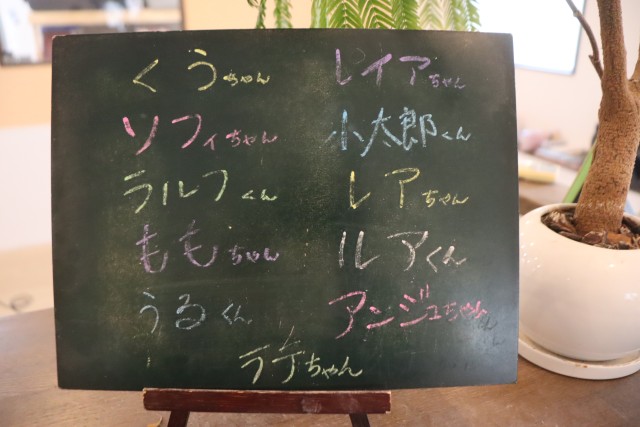 くうちゃん
ソフィちゃん
ラルフくん
ももちゃん
うるくん
レイアちゃん
小太郎くん
レアちゃん
ルアくん
アンジュちゃん
ラテちゃん